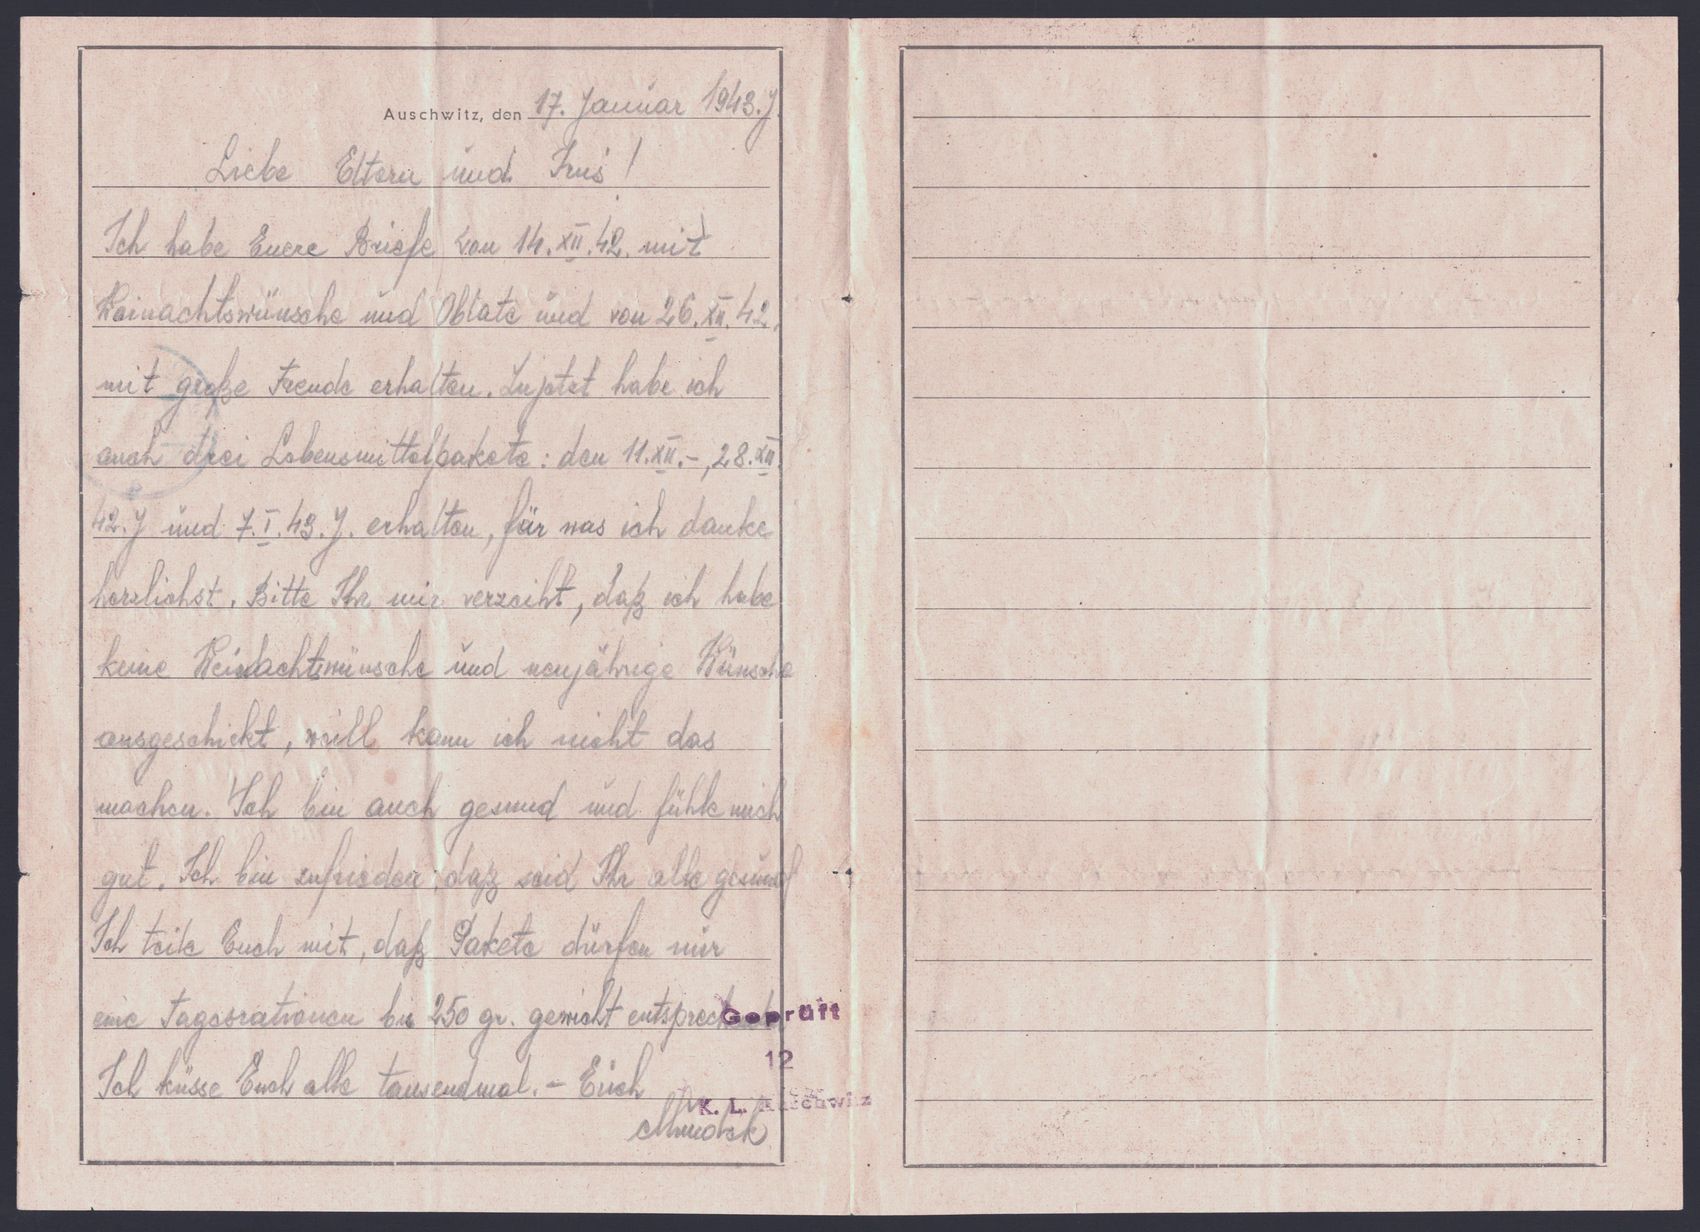 Auschwitz, den 17. Januar 1943.J.
Liebe Eltern und !
Ich habe Euere Briefe von 14.XII.42. mit
Weinachtswünsche und Oblate und von 26.XII.42.
mit große Freude erhalten. Zujetzt habe ich
auch drei Lebensmittelpakete: den 11.XII.-, 28.XII.
42.J und 7.I.43.J. erhalten, für was ich danke
herzlichst. Bitte Ihr mir verzeiht, daß ich habe
keine Weinachtswünsche und neujährige Wünsche
ausgeschickt, will kann ich nicht das
machen. Ich bin auch gesund und fühle mich
gut. Ich bin zufrieden, daß seid Ihr alle gesund
Ich teile Euch mit, daß Pakete dürfen nur
eine Tagesrationen bis 250 gr. gewicht
Ich küsse Euch alle tausendmal. - Erich
Geprüft
12
K. L. Auschwitz